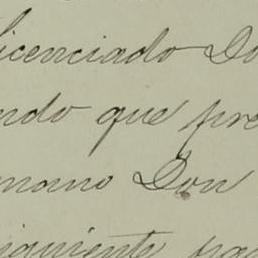 licenciado Do
ndo que pre
mano Don
iguiente pa